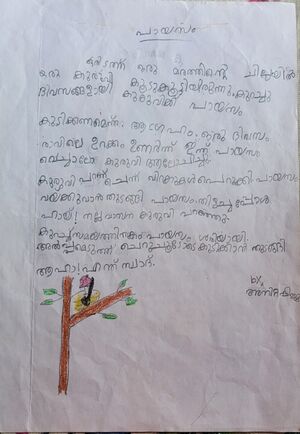 പായസം
ഒരിടത്ത്
ഒരു കുരുവി ഒരു മരത്തിന്റെ ചില്ലയിൽ
കൂടുകൂട്ടിയിരുന്നു. കുറച്ചു
ദിവസങ്ങളായി കുരുവിക്ക് പായസം
കുടിക്കണമെന്ന് ആഗ്രഹം. ഒരു ദിവസം
രാവിലെ ഉറക്കം ഉണർന്ന് ഇന്ന് പായസം
വെച്ചാലോ കുരുവി ആലോചിച്ചു.
കുരുവി പറന്ന് ചെന്ന് വിറകുകൾ പെറുക്കി പായസം
വയ്ക്കുവാൻ തുടങ്ങി പായസം തിളച്ചപ്പോൾ
ഹായ്! നല്ല വാസന കുരുവി പറഞ്ഞു.
കുറച്ചുസമയത്തിനകം പായസം ശരിയായി.
അൽപ്പമെടുത്ത് ചെറുചൂടോടെ കുടിക്കാൻ തുടങ്ങി
ആഹാ! എന്ത് സ്വാദ്.
by,